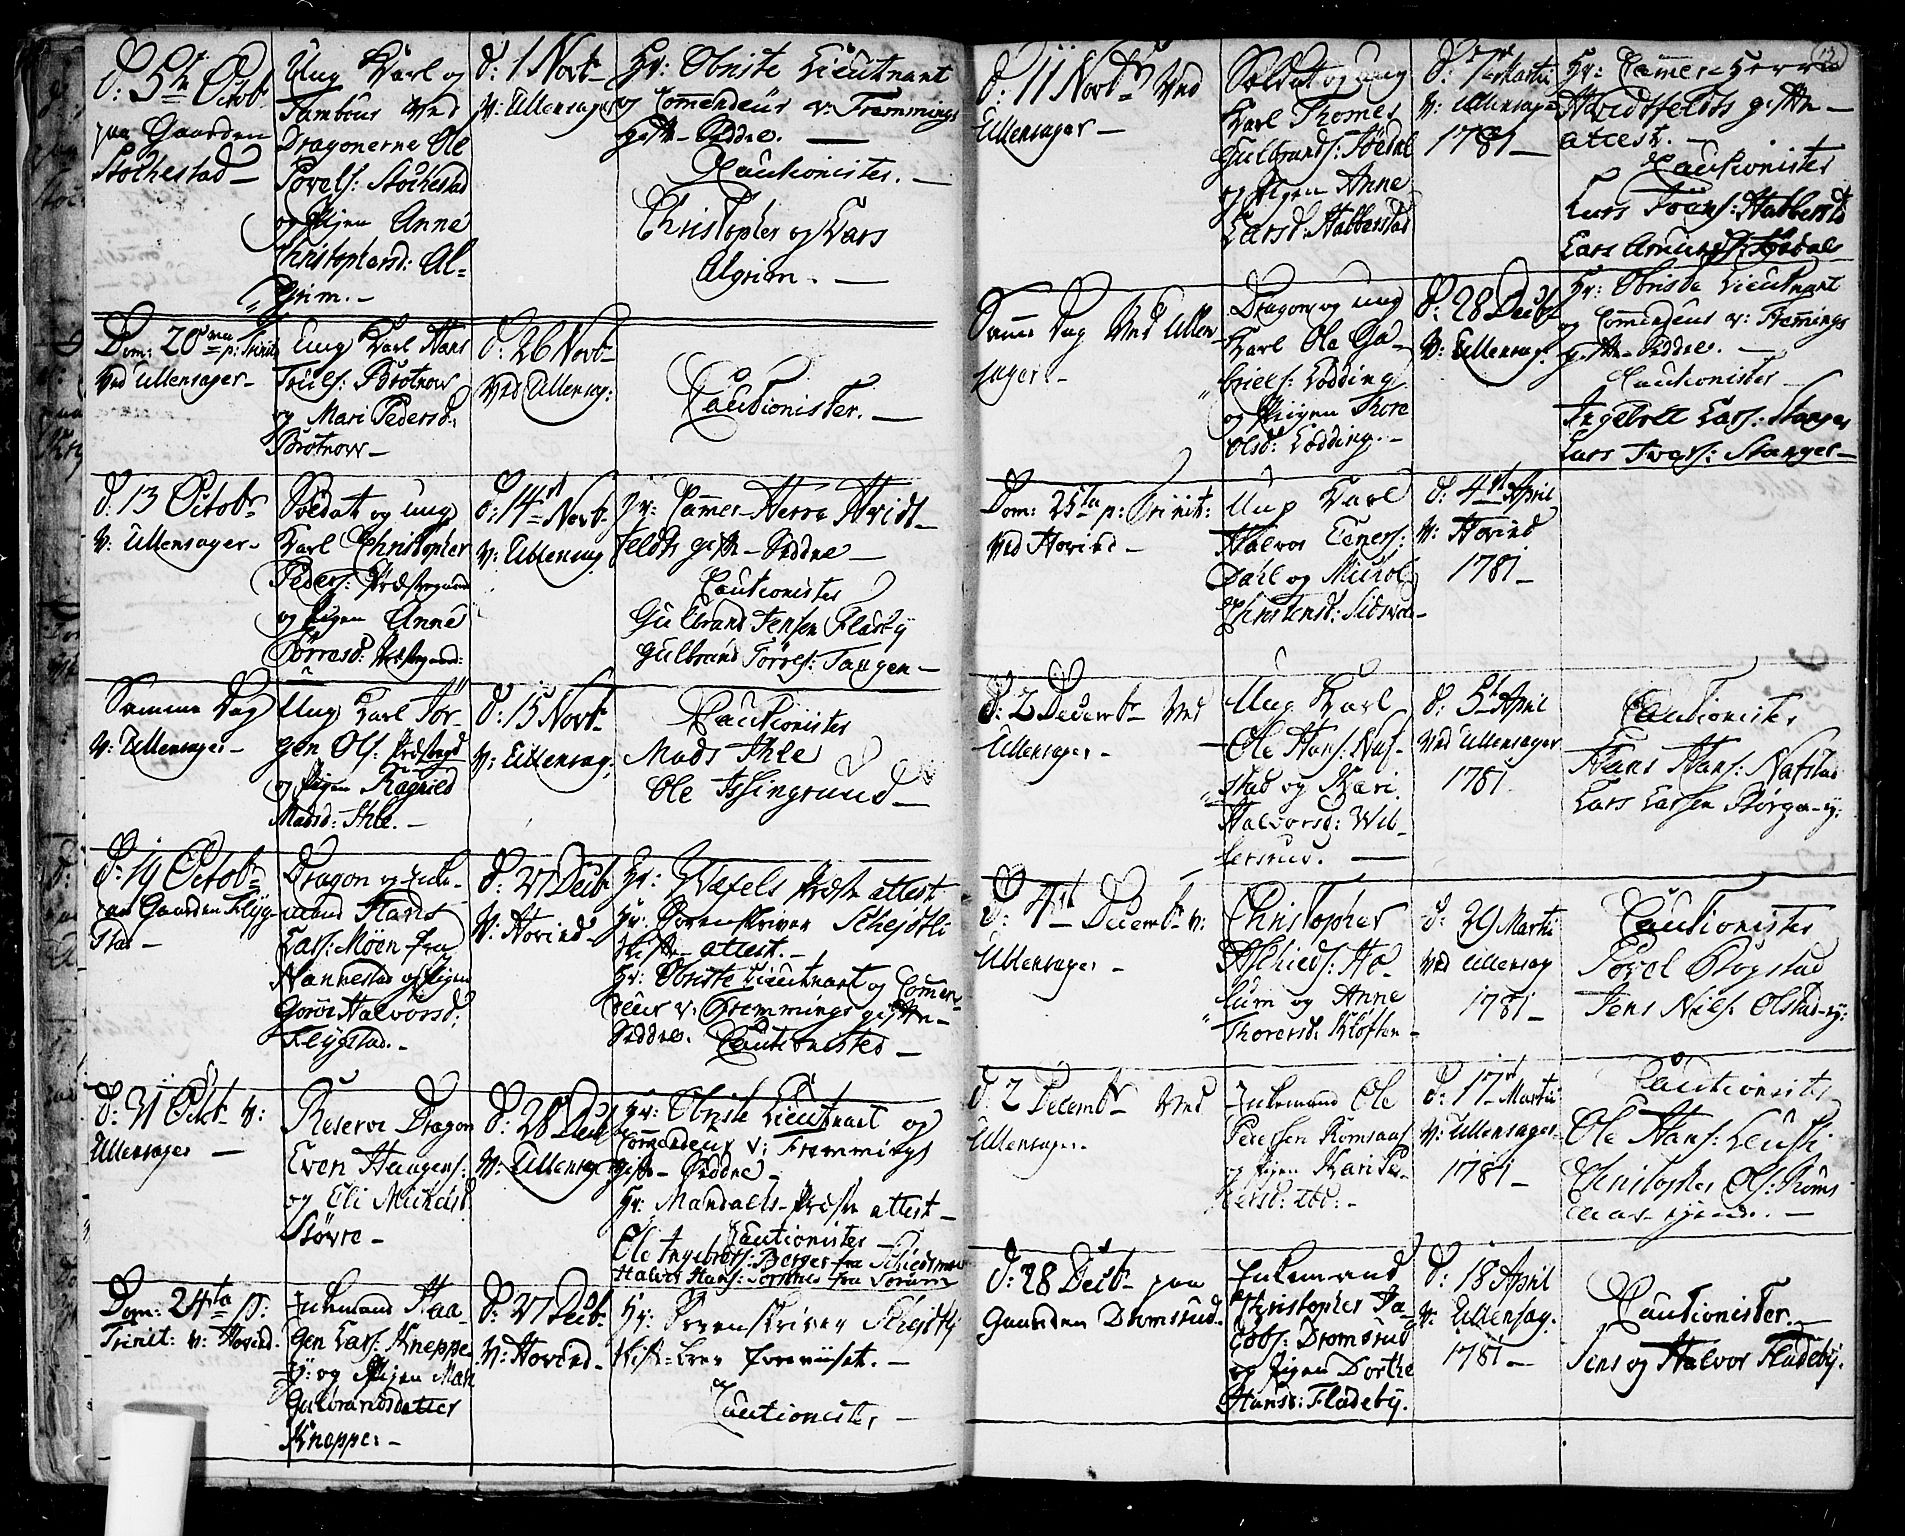 d: 5te Octob.
paa Gaarden
Stochestad —
Ung Karl og
Tambour ved
Dragonerne Ole
Povels: Stochestad
og Pigen Anne
Christophersd: Al-
grim. —
d: 1 Novb.
v: Ullensager
Hr: Obriste Lieutnant
og Commendeur v: Fremmings
gifte-Seddel. —
Cautionister. —
Christopher og Lars
Algrim. —
Dom: 20ma p: Trinit
ved Ullensager —
Ung Karl Hans
Truls: Brotnow
og Mari Pedersd:
Brotnow —
d: 26 Novb.
ved Ullensag:
Cautionister. —
d: 13 Octobr
v: Ullensager —
Soldat og ung
Karl Christopher
Peders: Præstegaard
og Pigen Anne
Børresd: Præstegaard:
d: 14 Novb.
v: Ullensag
Hr: Cammer-Herre Hvidt-
feldts gifte-Seddel —
Cautionister
Gulbrand Jensen Fladby
Gulbrand Torers: Taugen —
Samme Dag
v: Ullensager —
Ung Karl Jör-
gen Ols: Præstegrd
og Pigen Ragnild
Madsd: Ihle. —
d: 15 Novb.
v: Ullensag:
Cautionister
Mads Ihle
Ole Issingrund —
d: 19 Octobr
paa Gaarden Flyg-
stad —
Dragon og Enke-
mand Hans
Lars: Möen fra
Nannestad og Pigen
Goroe Halvorsd:
Flygstad. —
d: 27 Decb
v: Hovind —
Hr: Wefels Præste attest
Hr: Sorenskriver Schejdtli
skifte-attest. —
Hr: Obriste Lieutnant og Commen-
deur v: Fremmings gifte-
Seddel. Cautionisted —
d: 31 Octb v:
Ullensager —
Reserve Dragon
Even Haagens:
og Eli Michelsd
Stövre —
d: 28 Decb
v: Ullensag
Hr: Obriste Lieutnant og
Commandeur v: Fremmings
gifte-Seddel
Hr: Mandahls-Præste attest —
Cautionister
Ole Ingebrets: Berger fra Schiedsmoe
Halvor Hans: fra Sörum
Dom: 24ta p:
Trinit: v: Hovind
Enkemand Haa-
gen Lars: Kneppe
og Pigen Mari
Gulbrandsdatter
Kneppe. —
d: 27 Decb.
v: Hovind —
Hr: Sorenskriver Schejdtli
skifte-brev foreviist. —
Cautionister —
13
d: 11 Novbr ved
Ullensager —
Soldat og ung
Karl Thomes
Gulbrands: Södal
og Pigen Anne
Larsd: Habberstad
d: 7 Martii
v: Ullensager
1781 —
Hr: Cammer-Herre
Hvidtfeldts gifte-
attest. —
Cautionister
Lars Svens: Habberst
Lars Amunds:
Samme Dag ved Ullen-
sager —
Dragon og ung
Karl Ole Ga-
briels: Lodding
og Pigen Thore
Olsd: Lodding. —
d: 28 Decb
v: Ullensag:
Hr: Obriste Lieutnant
og Commendeur v: Fremmings
gifte-Seddel. —
Cautionister —
Ingebret Lars: Stanger
Lars Ivers: Stanger —
Dom: 25ta p: Trinit:
ved Hovind —
Ung Karl
Halvor Eeners:
Dahl og Michol
Christensd:
d: 4 April
v: Hovind
1781 —
d: 2 Decembr ved
Ullensager —
Ung Karl
Ole Hans: Naf-
stad og Kari
Halvorsd: Wil-
bersrud. —
d: 5 April
ved Ullensager
1781
Cautionister
Hans Hans: Nafstad
Lars Larsen Börga- ej:
d: 4 Decembr v:
Ullensager —
Christopher
Aschields: Ho-
lum og Anne
Thorersd: Klöften —
d: 29 Martii
ved Ullensag
1781 —
Cautionister
Povel Bogstad
Jens Niels: Olstad-ej:
d: 2 Decembr ved
Ullensager —
Enkemand Ole
Pedersen Romsaas
og Pigen Kari Pe-
dersd: ibd: —
d: 17 Martii
v: Ullensager
1781 —
Cautionister
Ole Hans:
Christopher Ols: Roms
aas ejend. —
d: 28 Decbr paa
Gaarden Dromsrud.
Enkemand
Christopher Ja-
cobs: Dromsrud
og Pigen Dorthe
Hansd: Fladeby.
d: 18 April
v: Ullensag:
1781 —
Cautionister. —
Jens og Halvor Fladeby.